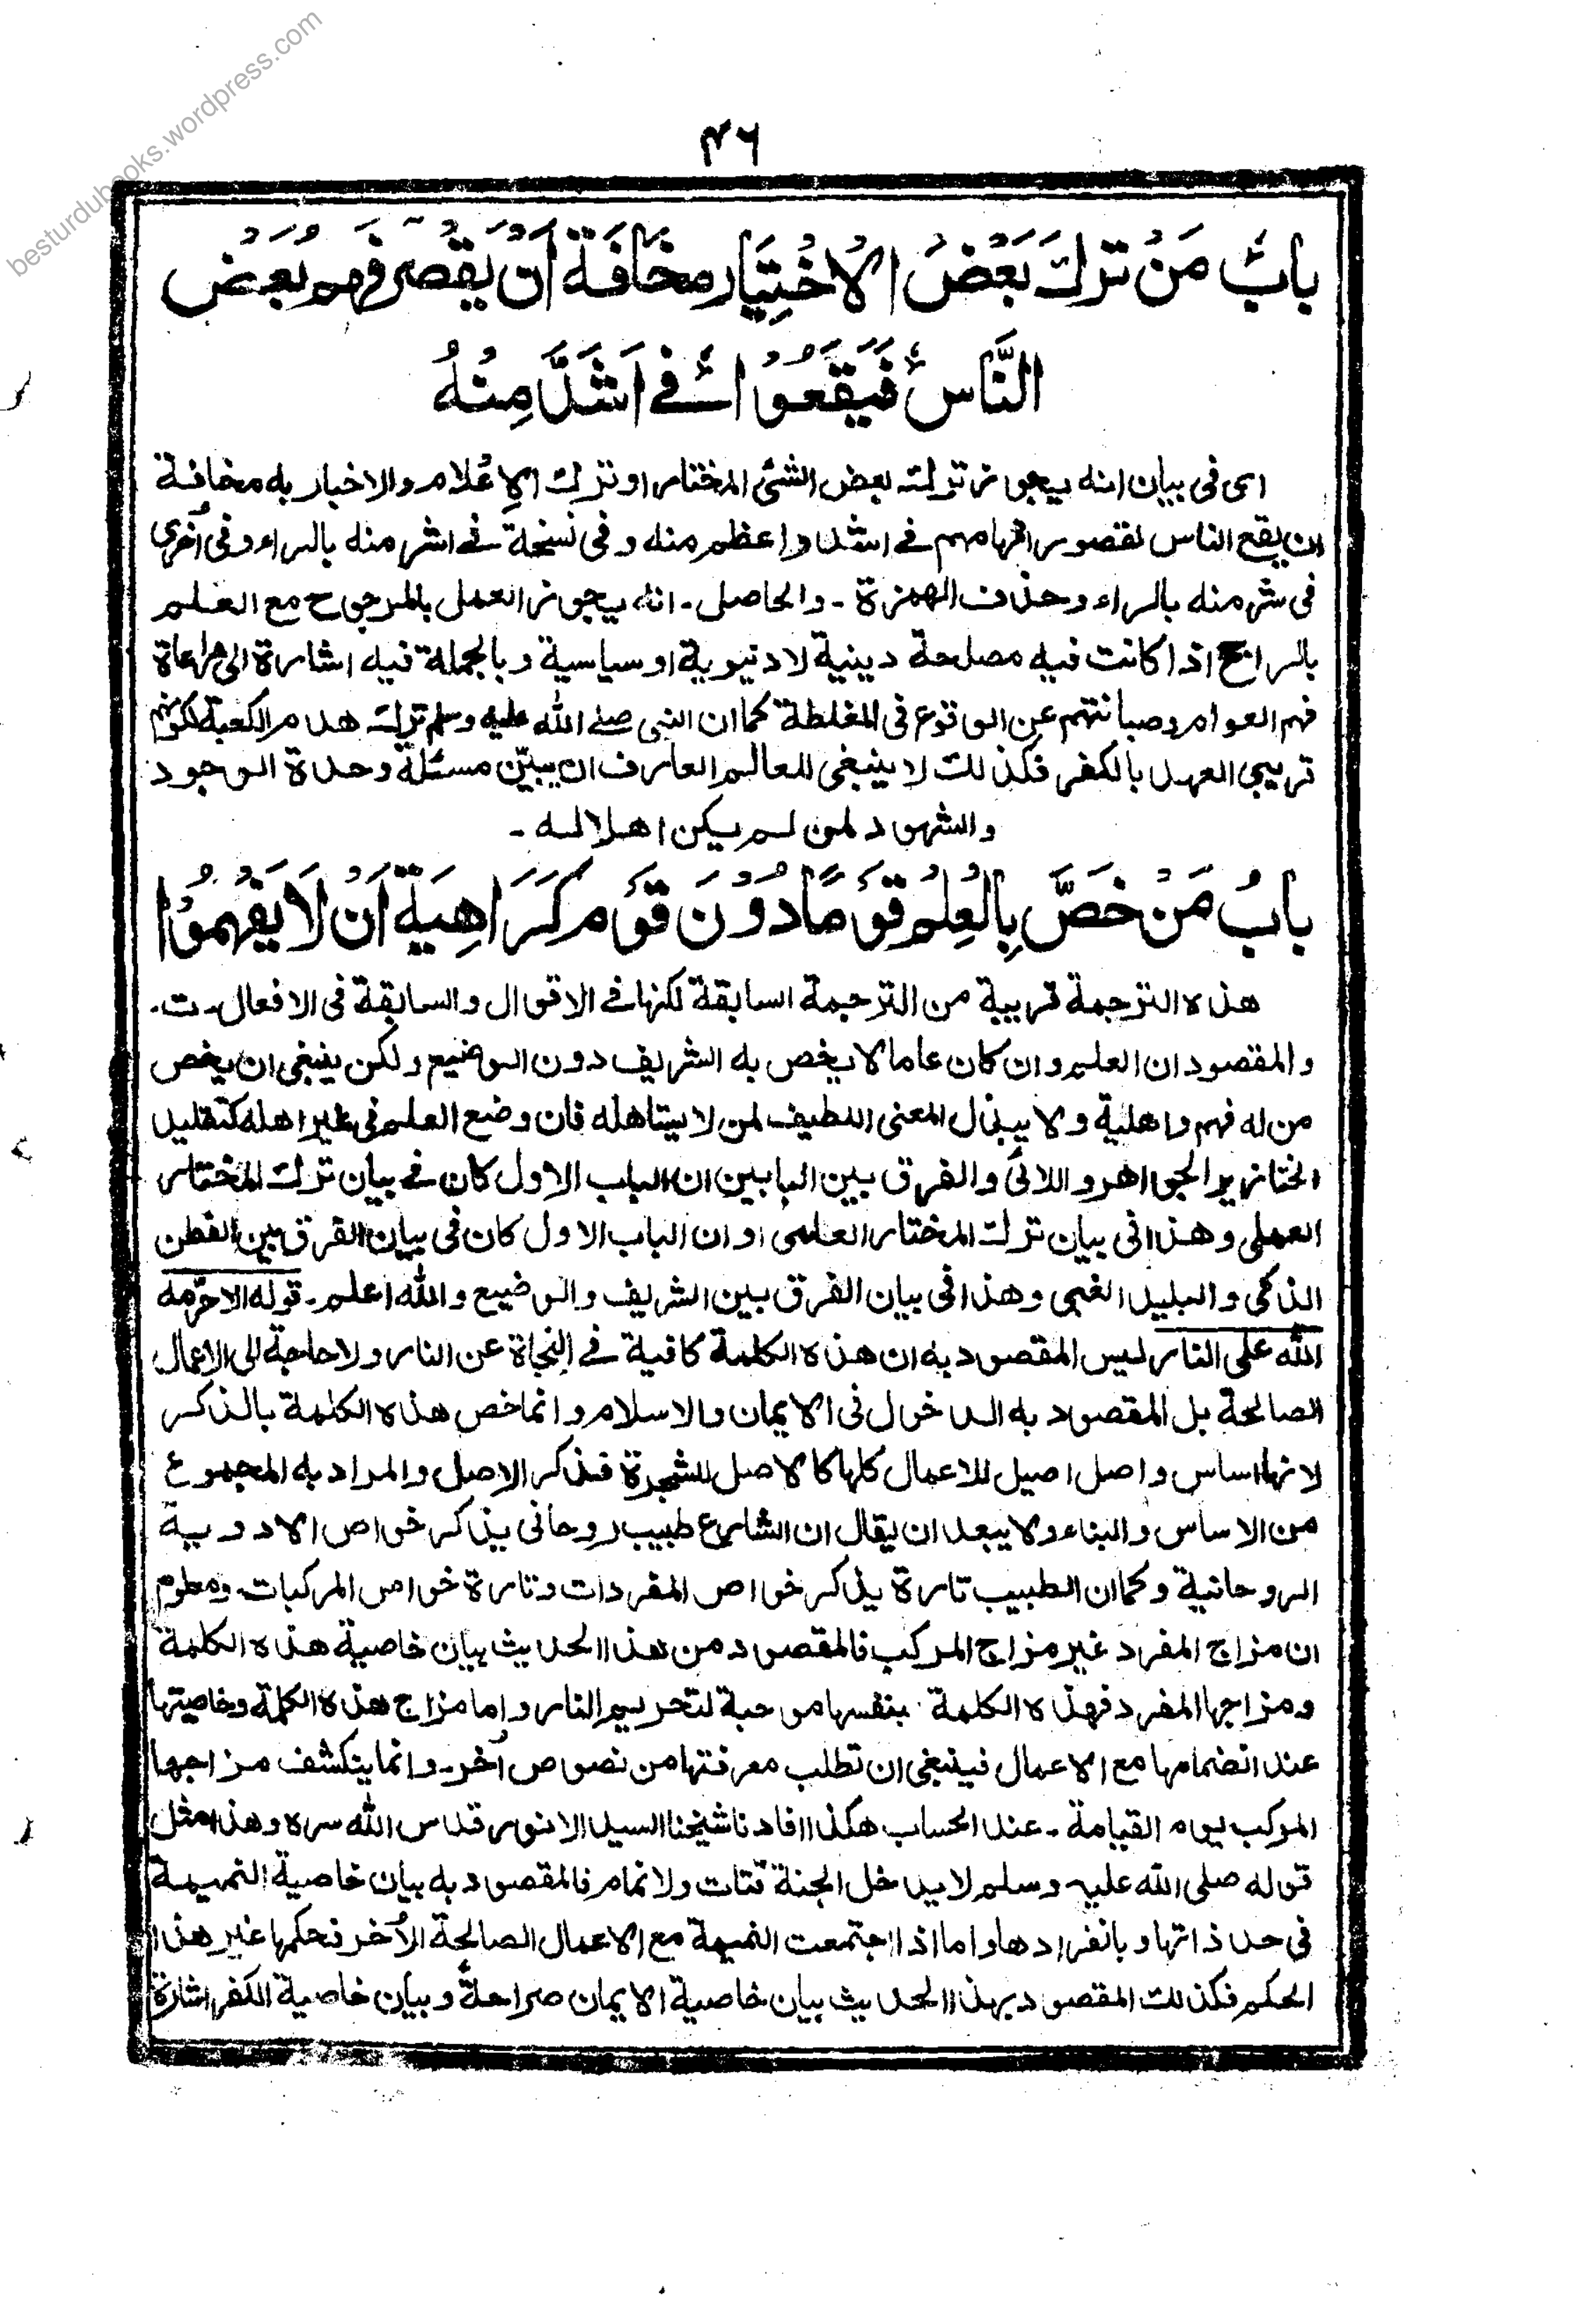 besturdubooks.wordpress.com
۴۶
بابُ مَنْ تَرَكَ بَعْضَ الْاِخْتِيَارِ مَخَافَةَ اَنْ يَقْصُرَ فَهْمُ بَعْضِ
النَّاسِ فَيَقَعُوْا فِيْ اَشَدَّ مِنْهُ
اى فى بيان انه يجوز ترك بعض الشئ المختار او ترك الاعلام والاخبار به مخافة
ان يقع الناس لقصور افهامهم فى اشد واعظم منه وفى نسخة فى اشر منه بالراء وفى اُخرى
فى شر منه بالراء وحذف الهمزة ـ والحاصل ـ انه يجوز العمل بالمرجوح مع العلم
بالراجح اذا كانت فيه مصلحة دينية لا دنيوية او سياسية وبالجملة فيه اشارة الى مراعاة
فهم العوام وصيانتهم عن الوقوع فى المغلطة كما ان النبى صلے الله عليه وسلم ترك هدم الكعبة لكونهم
قريبى العهد بالكفر فكذلك لا ينبغى للعالم العارف ان يبيّن مسئلة وحدة الوجود
والشهود لمن لم يكن اهلا له ـ
بابُ مَنْ خَصَّ بِالْعِلْمِ قَوْمًا دُوْنَ قَوْمٍ كَرَاهِيَةَ اَنْ لَا يَفْهَمُوْا
هذه الترجمة قريبة من الترجمة السابقة لكنها فى الاقوال والسابقة فى الافعال ـ ت ـ
والمقصود ان العلم وان كان عاما لا يخص به الشريف دون الوضيع ولكن ينبغى ان يخص
من له فهم واهلية ولا يبذل المعنى اللطيف لمن لا يستاهله فان وضع العلم فى غير اهله كتقليد
الخنازير الجواهر واللالئ والفرق بين البابين ان الباب الاول كان فى بيان ترك المختار
العملى وهذا فى بيان ترك المختار العلمى او ان الباب الاول كان فى بيان الفرق بين الفطن
الذكى والبليد الغبى وهذا فى بيان الفرق بين الشريف والوضيع والله اعلم ـ قوله الا حرّمه
الله على النار ليس المقصود به ان هذه الكلمة كافية فى النجاة عن النار ولا حاجة الى الاعمال
الصالحة بل المقصود به الدخول فى الايمان والاسلام وانما خص هذه الكلمة بالذكر
لانها اساس واصل اصيل للاعمال كلها كالاصل للشجرة فذكر الاصل والمراد به المجموع
من الاساس والبناء ولا يبعد ان يقال ان الشارع طبيب روحانى يذكر خواص الادوية
الروحانية وكما ان الطبيب تارة يذكر خواص المفردات وتارة خواص المركبات ـ ومعلوم
ان مزاج المفرد غير مزاج المركب فالمقصود من هذا الحديث بيان خاصية هذه الكلمة
ومزاجها المفرد فهذه الكلمة بنفسها موجبة لتحريم النار واما مزاج هذه الكلمة وخاصيتها
عند انضمامها مع الاعمال فينبغى ان تطلب معرفتها من نصوص اُخر ـ وانما ينكشف مزاجها
المركب يوم القيامة ـ عند الحساب هكذا افادنا شيخنا السيد الانور قدس الله سره وهذا مثل
قوله صلى الله عليه وسلم لا يدخل الجنة قتات ولا نمام فالمقصود به بيان خاصية النميمة
فى حد ذاتها وبانفرادها واما اذا اجتمعت النميمة مع الاعمال الصالحة الاُخر فحكمها غير هذا
الحكم فكذلك المقصود بهذا الحديث بيان خاصية الايمان صراحةً وبيان خاصية الكفر اشارة